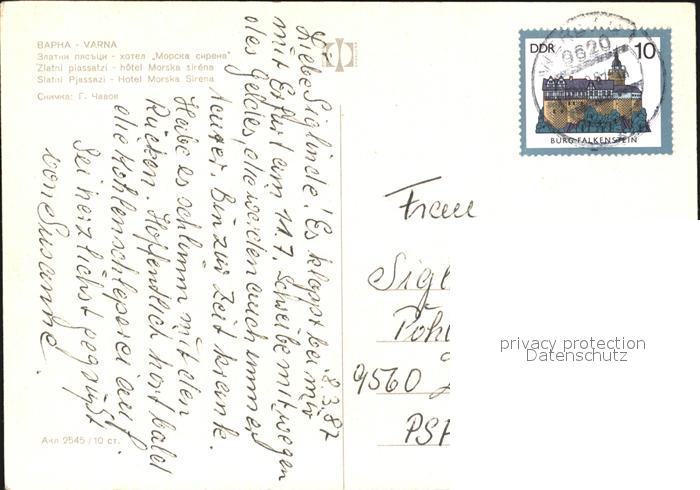 ВАРНА - VARNA
Златни пясъци - хотел „Морска сирена"
Zlatni piassatzi - hôtel Morska siréna
Slatni Pjassazi - Hotel Morska Sirena
Снимка: Г. Чавов
8.3.87
Liebe Siglinde! Es klappt bei mir
mit Erfurt am 11.7. Schreibe mit wegen
des Geldes, die werden auch immer
teurer. Bin zur Zeit krank.
Habe es schlimm mit den
Rücken. Hoffentlich hört bald
die Kohlenschleperei auf.
Sei herzlichst gegrüßt
von Susanne.
Акл 2545/10 ст.
DDR 10
BURG FALKENSTEIN
9620
Frau
Sigl
Pohl
9560
PSF
privacy protection
Datenschutz